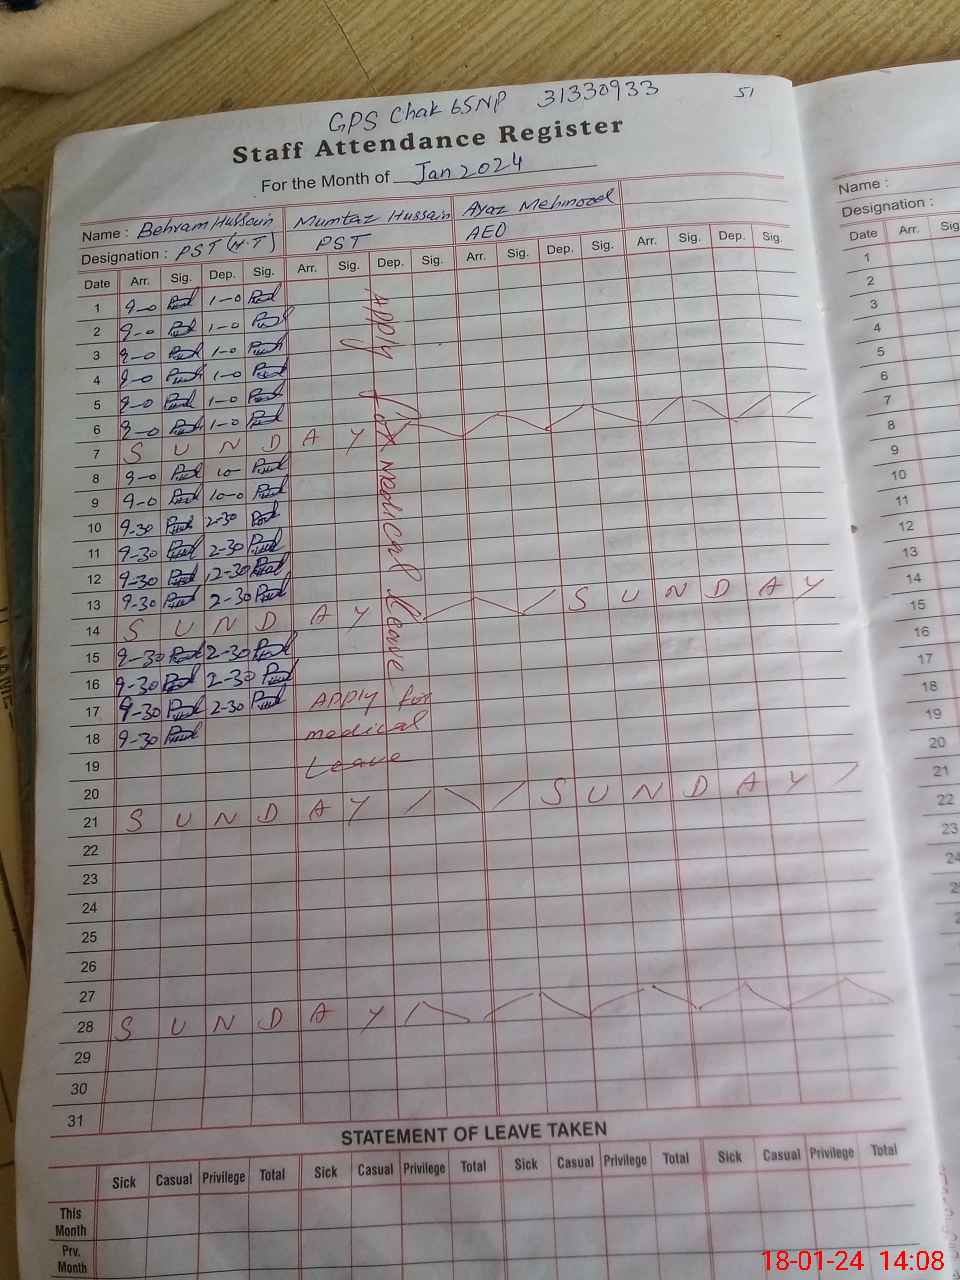 GPS Chak 65NP 31330933 51
Staff Attendance Register
For the Month of Jan 2024
Name : Behram Hussain Mumtaz Hussain Ayaz Mehmood
Designation : PST (H.T) PST AEO
Date Arr. Sig. Dep. Sig. Arr. Sig. Dep. Sig. Arr. Sig. Dep. Sig. Arr. Sig. Dep. Sig.
1 9-0 1-0
2 9-0 1-0
3 9-0 1-0
4 9-0 1-0
5 9-0 1-0
6 9-0 1-0
7 S U N D A Y
8 9-0 10-
9 9-0 10-0
10 9-30 2-30
11 9-30 2-30
12 9-30 12-30
13 9-30 2-30
14 S U N D A Y S U N D A Y
15 9-30 2-30
16 9-30 2-30
17 9-30 2-30
18 9-30
19
20
21 S U N D A Y S U N D A Y
22
23
24
25
26
27
28 S U N D A Y
29
30
31
Apply for medical Leave
Apply for
medical
Leave
STATEMENT OF LEAVE TAKEN
Sick Casual Privilege Total Sick Casual Privilege Total Sick Casual Privilege Total Sick Casual Privilege Total
This
Month
Prv.
Month
Name :
Designation :
Date Arr. Sig
1
2
3
4
5
6
7
8
9
10
11
12
13
14
15
16
17
18
19
20
21
22
23
24
18-01-24 14:08